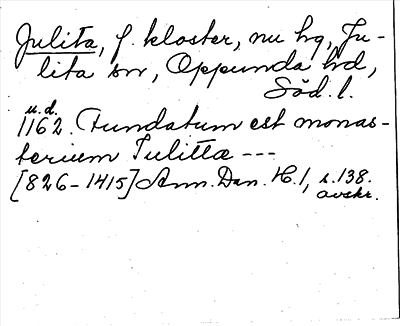 Julita, f. kloster, nu hg, Ju-
lita sn, Oppunda hd,
Söd. l.
u.d.
1162. Fundatum est monas-
terium Iulitta ---
[826-1415] Ann. Dan. H. 1, s. 138.
avskr.